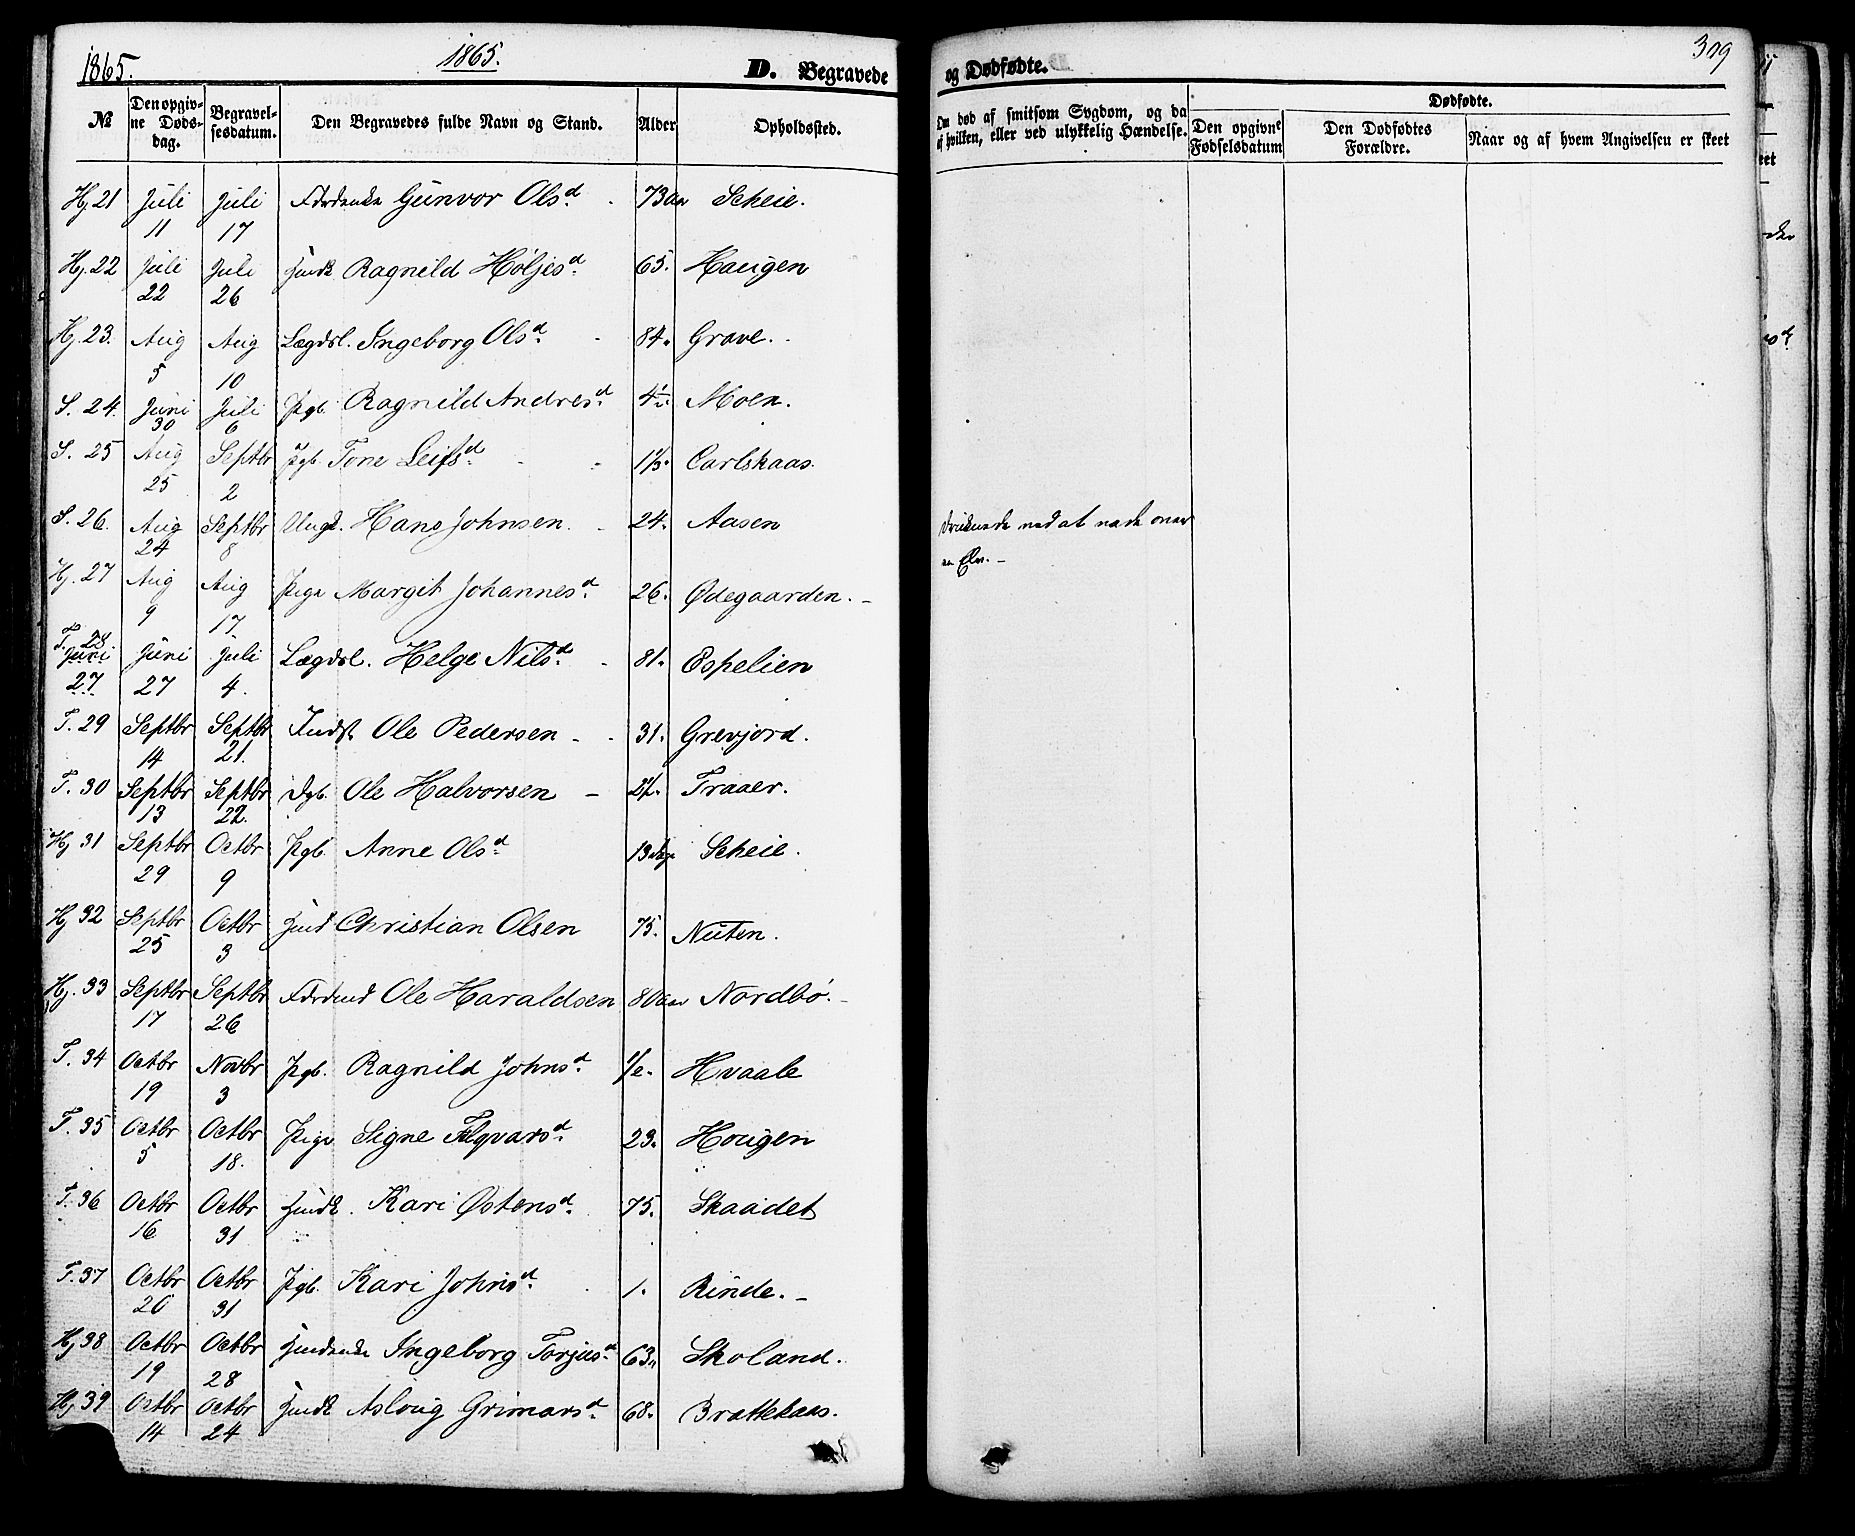 1865. 1865. D. Begravede
№ Den opgivne Dødsdag. Begravelsesdatum. Den Begravedes fulde Navn og Stand. Alder Opholdssted.
Hj 21 Juli 11 Juli 17 Gunvor Olsd. 73 aar Scheie.
Hj. 22 Juli 22 Juli 26 Ragnild Høljesd. 65. Haugen
Hj. 23. Aug 5 Aug 10 Lægdsl. Ingeborg Olsd. 84. Grave.
S. 24. Juni 30 Juli 6 Pgb. Ragnild Andresd. 4½. Moen.
S. 25 Aug 25 Septbr 2 Pgb. Tone Leifsd. Carlskaas.
S. 26. Aug 24 Septbr 8 Ungk. Hans Johnsen. 24. Aasen
Hj. 27 Aug 9 Aug 17 Pige Margit Johannesd. 26. Ødegaarden.
T. 28 Juni 27 Juni 27 Juli 4. Lægdsl. Helge Nilsd. 81. Espelien
T. 29 Septbr 14 Septbr 21. Indst Ole Pedersen 31. Grevjord.
T. 30 Septbr 13 Septbr 22. Dgb. Ole Halvorsen Traaer.
Hj 31 Septbr 29 Octbr 9 Pgb. Anne Olsd. 13 Dage Scheie.
Hj 32 Septbr 25 Octbr 3 Christian Olsen 75. Nuten.
Hj. 33 Septbr 17 Septbr 26 Ole Haraldsen 80 aar Nordbø.
T. 34 Octbr 19 Novbr 3 Pgb. Ragnild Johnsd. Hvaale
T. 35 Octbr 5 Octbr 18. Pige Signe Tolqvarsd. 23. Hougen
T. 36 Octbr 16 Octbr 31 Kari Østensd. 75. Skaadet
T. 37 Octbr 20 Octbr 31 Pgb. Kari Johnsd. 1. Rinde.
Hj 38 Octbr 19 Octbr 28 Ingeborg Torjusd. 63. Skoland.
Hj 39 Octbr 14 Octbr 24 Asloug Grimarsd. 68. Brattekaas.
og Dødfødte. 309
Om død af smitsom Sygdom, og da af hvilken, eller ved ulykkelig Hændelse. Dødfødte.
Den opgivne Fødselsdatum Den Dødfødtes Forældre. Naar og af hvem Angivelsen er skeet
druknede ved at vade over
en Elv.